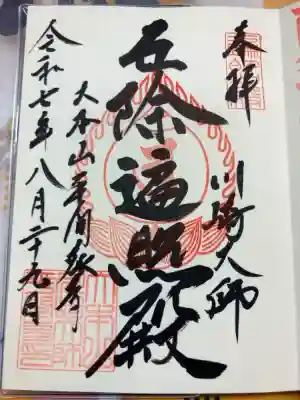 奉拝
川崎大師
厄除遍照殿
大本山平間教寺
令和七年八月二十九日